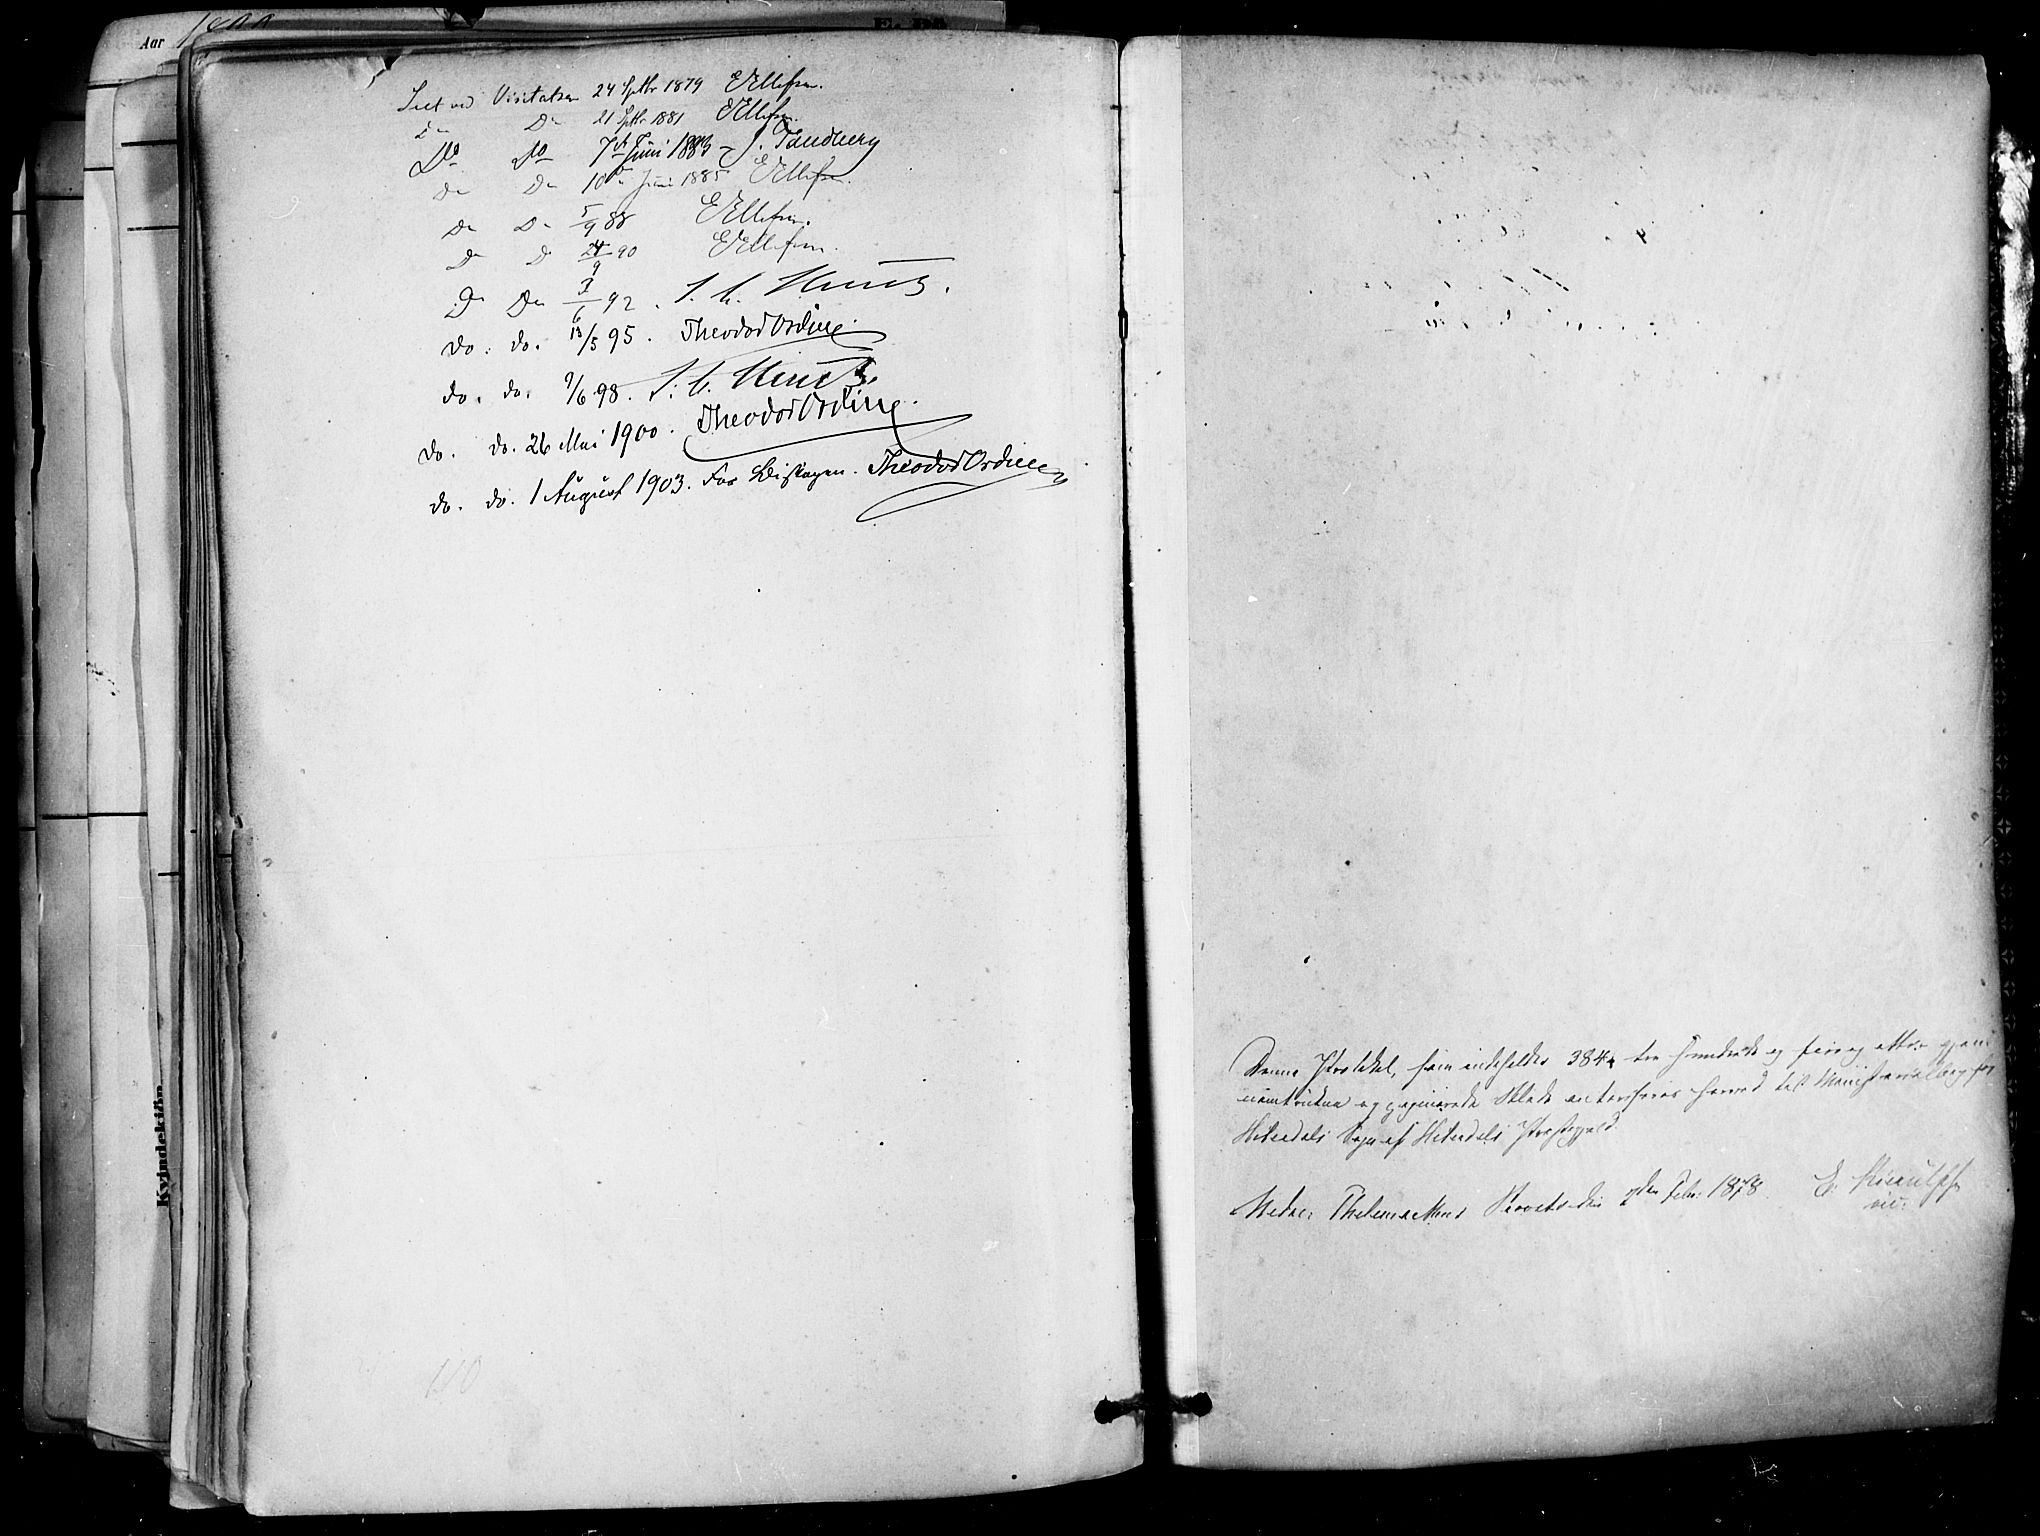 Aar
Seet ved Visitatsen 24 Septbr 1879 EEllefsen.
Do Do 21 Septbr 1881 EEllefsen.
Do Do 7de Juni 1883 J. Tandberg
Do Do 10de Juni 1885 EEllefsen.
Do Do 5/9 88 EEllefsen.
Do Do 24/9 90 EEllefsen.
Do Do 3/6 92.
do. do. 13/5 95. Theodor Ording.
do. do. 9/6 98.
do. do. 26 Mai 1900. Theodor Ording.
do. do. 1 August 1903. For Biskopen. Theodor Ording
Kvindekjön
110
Denne Protokol, som indeholder 384, tre Hundrede og fire og otteti gjen-
nemtrukne og paginerede Blade autoriseres herved til Ministerialbog for
Hiterdals Sogn af Hiterdals Præstegjeld.
Nedre Thelemarkens Provsti den Febr. 1878